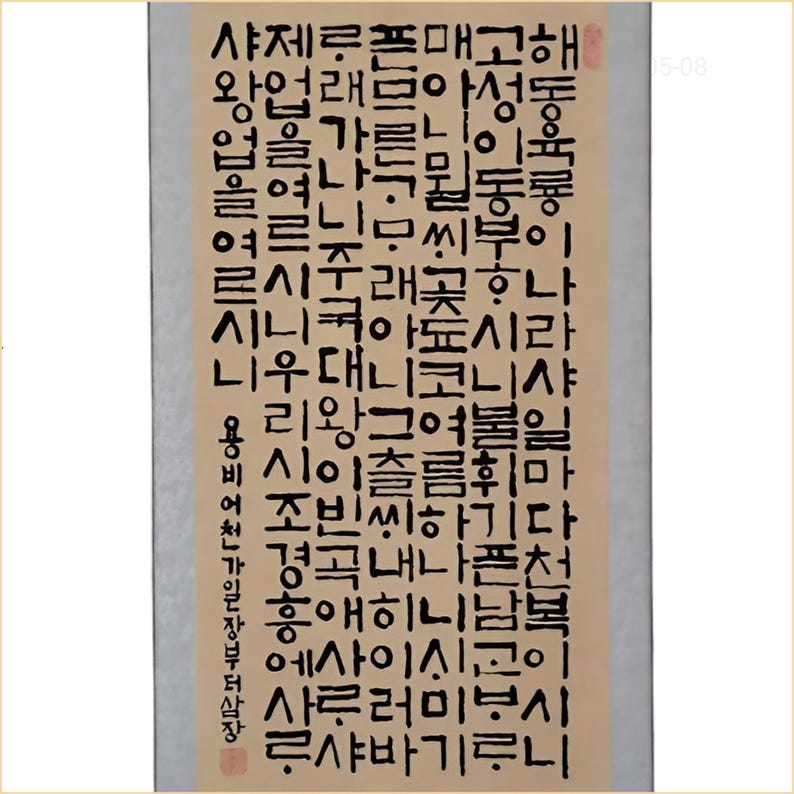 해동육룡이나라샤일마다천복이시니
고성이동부ᄒᆞ시니불휘기픈남ᄀᆞᆫᄇᆞᄅᆞ
매아니뮐ᄊᆡ곶됴코여름하나니ᄉᆡ미기
픈므른ᄀᆞᄆᆞ래아니그츨ᄊᆡ내히이러바
ᄅᆞ래가나니주국대왕이빈곡애사ᄅᆞ샤
제업을여르시니우리시조경흥에사ᄅᆞ
샤왕업을여르시니
용비어천가일장부터삼장
05-08